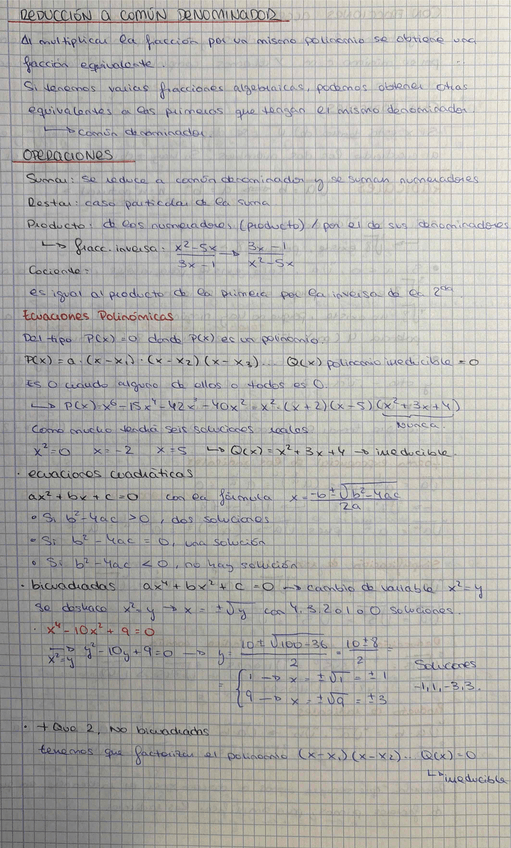 REDUCCIÓN A COMÚN DENOMINADOR
Al multiplicar la fracción por un mismo polinomio se obtiene una
fracción equivalente.
Si tenemos varias fracciones algebraicas, podemos obtener otras
equivalentes a las primeras que tengan el mismo denominador.
↳ común denominador.
OPERACIONES
Sumar: se reduce a común denominador y se suman numeradores
Restar: caso particular de la suma
Producto: de los numeradores (producto) / por el de sus denominadores
↳ fracc. inversa: x²-5x / 3x-1 → 3x-1 / x²-5x
Cociente:
es igual al producto de la primera por la inversa de la 2ᵈᵃ
Ecuaciones Polinómicas
Del tipo P(x)=0 donde P(x) es un polinomio.
P(x)=a·(x-x₁)·(x-x₂)(x-x₃)... Q(x) polinomio irreducible =0
Es 0 cuando alguno de ellos o todos es 0
↳ P(x) x⁶-15x⁴-42x³-40x² = x²·(x+2)(x-5)(x²+3x+4)
Como mucho tendrá seis soluciones reales nunca.
x²=0 x=-2 x=5 ↳ Q(x)=x²+3x+4 → irreducible.
· ecuaciones cuadráticas
ax²+bx+c=0 con la fórmula x=-b±√b²-4ac / 2a
• Si b²-4ac>0, dos soluciones
• Si b²-4ac=0, una solución
• Si b²-4ac<0, no hay solución
· bicuadradas ax⁴+bx²+c=0 → cambio de variable x²=y
Se deshace x²=y → x=±√y con 4,3,2,0,1 o 0 soluciones.
· x⁴-10x²+9=0
x²=y → y²-10y+9=0 → y= 10±√100-36 / 2 = 10±8 / 2 =
= { 1 → x=±√1=±1 Soluciones
9 → x=±√9=±3 -1,1,-3,3.
· + Que 2, No bicuadradas
tenemos que factorizar el polinomio (x-x₁)(x-x₂)... Q(x)=0
↳ irreducible